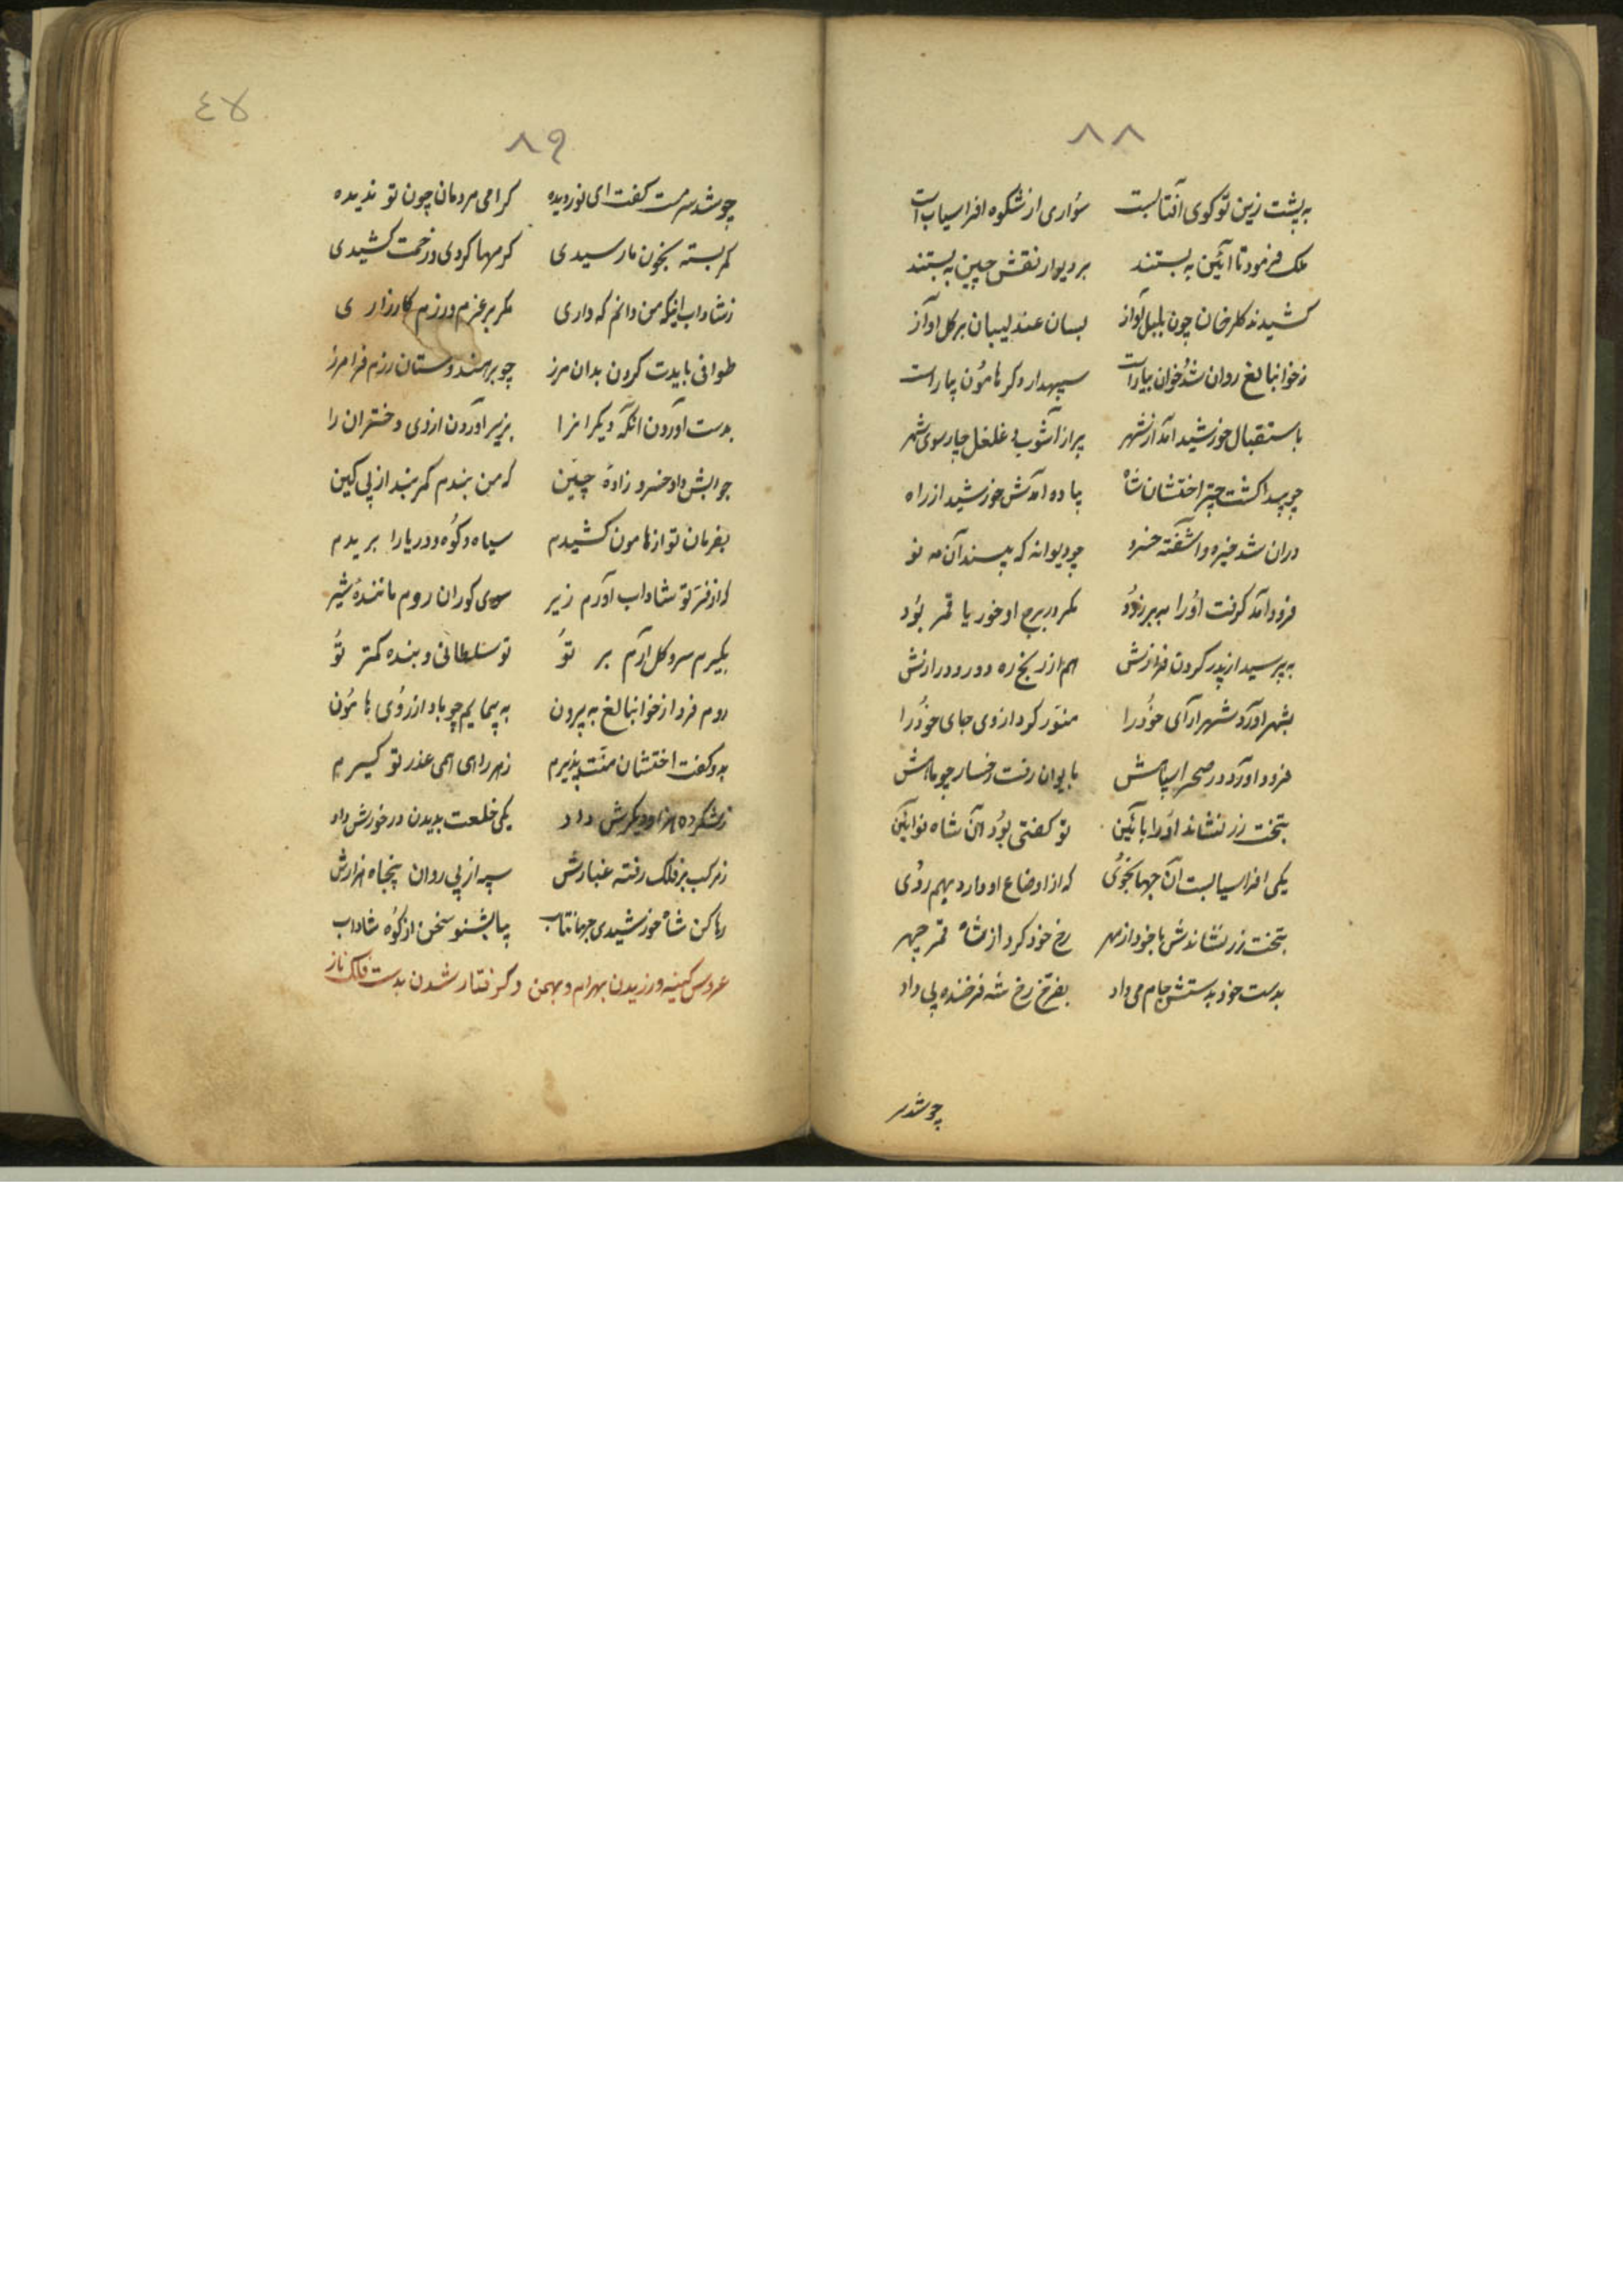 ۸۸
به پشت زین تو گوی آفتابست سواری از شکوه افراسیاب است
ملک فرمود تا آئین به بستند بر دیوار نقش چین به بستند
کشیدند گلرخان چون بلبل آواز بسان عندلیبان بر گل آواز
ز خوانبالغ روان شد خوان بیاراست سپهدار دگر هامون بیاراست
باستقبال خورشید آمد از شهر پر از آشوب و غلغل چارسوی شهر
چو پیدا گشت چتر اختشان شاه پیاده آمدش خورشید از راه
در آن شد خیره و آشفته خسرو چو دیوانه که بیند آن مه نو
فرود آمد گرفت او را به بر زود مگر در برج او خور یا قمر بود
به پرسید از پدر گردن فرازش هم از رنج ره دور و درازش
بشهر آورد شهرآرای خود را منور کرد از وی جای خود را
فرود آورد در صحرا سپاهش بایوان رفت رخسار چو ماهش
بتخت زر نشاند او را بآئین تو گفتی بود آن شاه نوآئین
یکی افراسیابست آن جهانجوی که از اوضاع او دارد بهم روی
بتخت زر نشاندش با خود از مهر رخ خود کرد از شاه قمر چهر
بدست خود بدستش جام می داد بفرخ رخ شه فرخنده پی داد
چو شد سر
٤٧
۸۹
چو شد سرمست گفت ای نور دیده گرامی مردمان چون تو ندیده
کمر بسته بخون ما رسیدی کرمها کردی و زحمت کشیدی
ز شاداب اینکه من دانم که داری مگر بر عزم و رزم کارزاری
طوافی بایدت کردن بدان مرز چو بر هندوستان رزم فرامرز
بدست آوردن آنگه دیگرانرا بزیر آوردن از وی دختران را
جوابش داد خسرو زاده چین که من بندم کمر بند از پی کین
بفرمان تو از هامون کشیدم سیاه و کوه و دریا را بریدم
که از فر تو شاداب آورم زیر سوی گوران روم ماننده شیر
بگیرم سرو گل آرم بر تو تو سلطانی و بنده کمتر تو
روم فردا ز خوانبالغ به بیرون به پیمایم چو باد از روی هامون
بدو گفت اختشان منت پذیرم ز همراهی همی عذر تو گیرم
ز لشکر ده هزار دیگرش داد یکی خلعت بدیدن در خورش داد
ز مرکب بر فلک رفته غبارش سپه از پی روان پنجاه هزارش
رها کن شاه خورشیدی جهانتاب بیا بشنو سخن از کوه شاداب
عروس کینه ورزیدن بهرام و بهمن و گرفتار شدن بدست فلک ناز